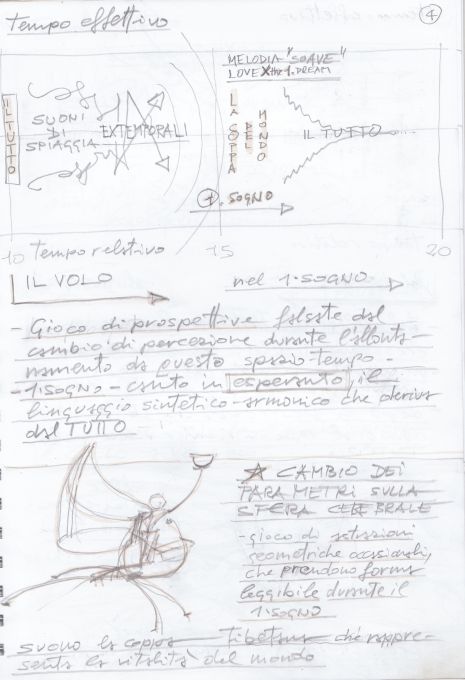 Tempo effettivo
4
MELODIA "SOAVE"
LOVE X the 1. DREAM
IL TUTTO
SUONI
DI
SPIAGGIA
EXTEMPORALI
LA SOPPA
DEL
MONDO
IL TUTTO
1. SOGNO
10 tempo relativo 15 20
IL VOLO nel 1·SOGNO
- Gioco di prospettive falsate dal
cambio di percezione durante l'allonta-
namento da questo spazio-tempo -
- 1·SOGNO - canto in esperanto, il
linguaggio sintetico-armonico che deriva
dal TUTTO
CAMBIO DEI
PARAMETRI SULLA
SFERA CEREBRALE
- gioco di
geometriche occasionali,
che prendono forma
leggibile durante il
1·SOGNO
suono la Tibetana che rappre-
senta la vitalità del mondo